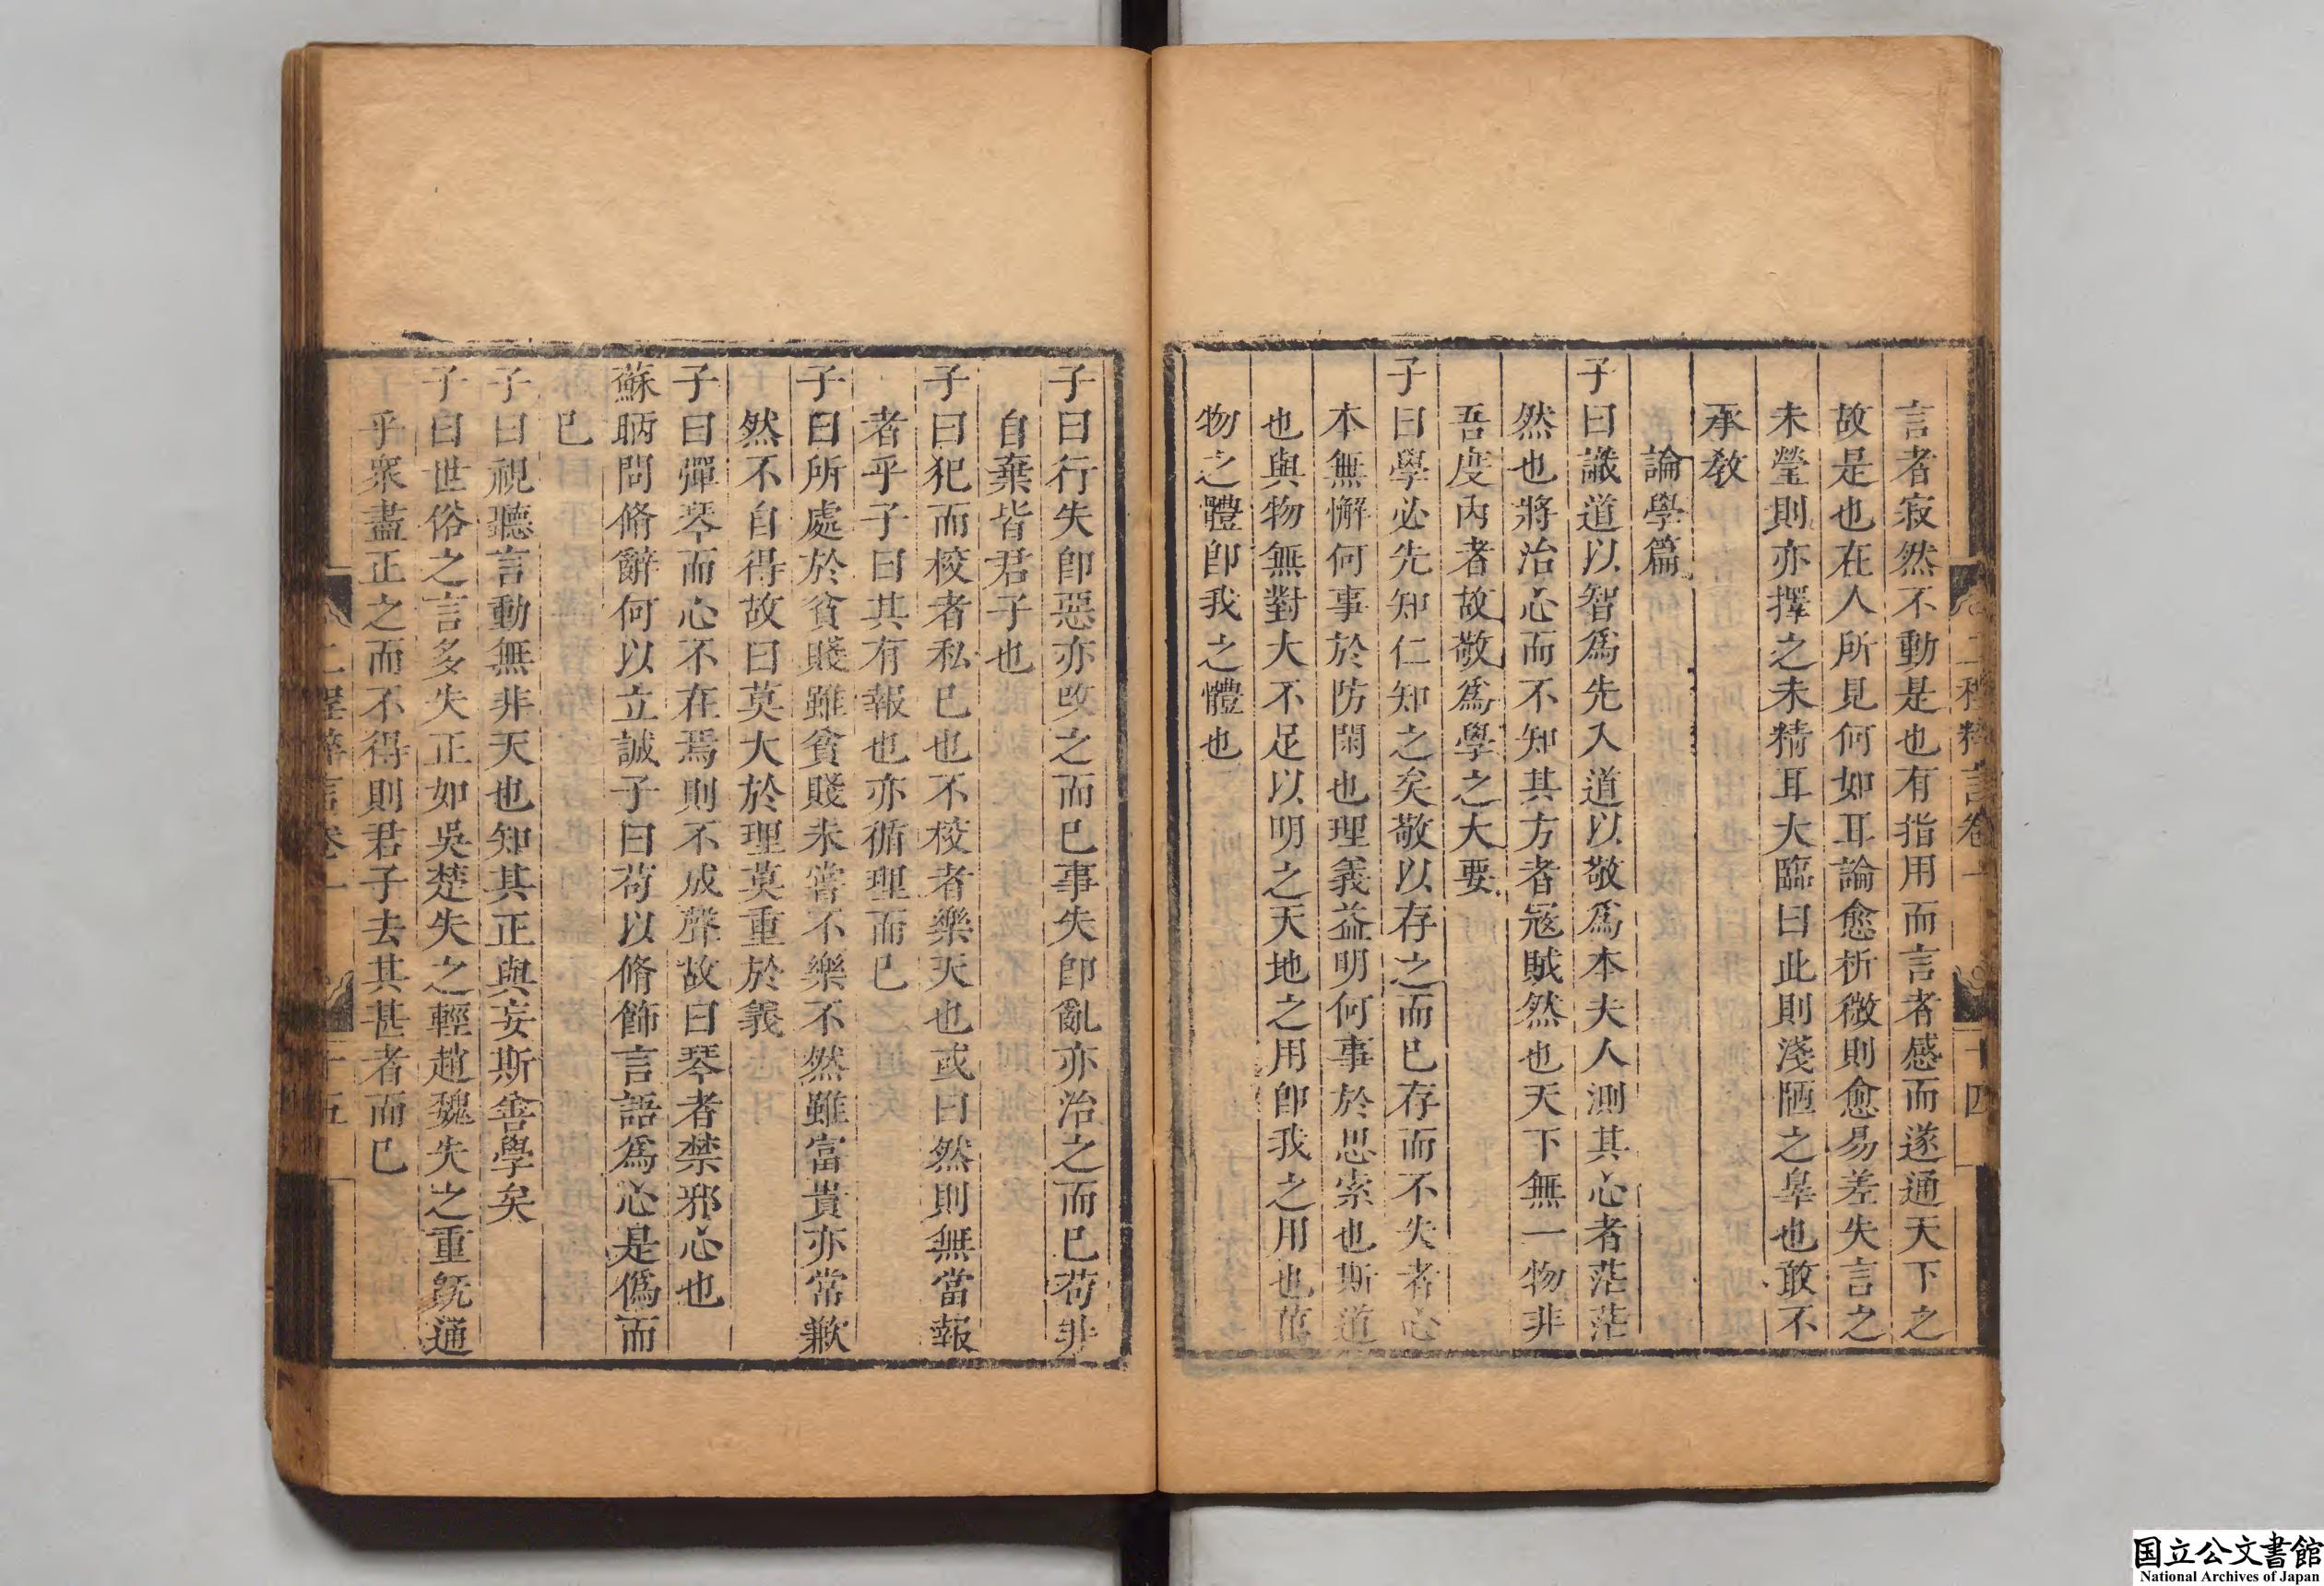 二程粹言卷一
十四
言者寂然不動是也有指用而言者感而遂通天下之
故是也在人所見何如耳論愈析微則愈易差失言之
未瑩則亦擇之未精耳大臨曰此則淺陋之辠也敢不
承敎
論學篇
子曰識道以智爲先入道以敬爲本夫人測其心者茫茫
然也將治心而不知其方者寇賊然也天下無一物非
吾度內者故敬爲學之大要
子曰學必先知仁知之矣敬以存之而已存而不失者心
本無懈何事於防閑也理義益明何事於思索也斯道
也與物無對大不足以明之天地之用卽我之用也萬
物之體卽我之體也
子曰行失卽惡亦改之而已事失卽亂亦治之而已苟非
自棄皆君子也
子曰犯而校者私已也不校者樂天也或曰然則無當報
者乎子曰其有報也亦循理而已
子曰所處於貧賤雖貧賤未嘗不樂不然雖富貴亦常歉
然不自得故曰莫大於理莫重於義
子曰彈琴而心不在焉則不成聲故曰琴者禁邪心也
蘇昞問脩辭何以立誠子曰苟以脩飾言語爲心是僞而
已
子曰視聽言動無非天也知其正與妄斯善學矣
子曰世俗之言多失正如吳楚失之輕趙魏失之重旣通
乎衆盡正之而不得則君子去其甚者而已
二程粹言卷一
十五
国立公文書館
National Archives of Japan